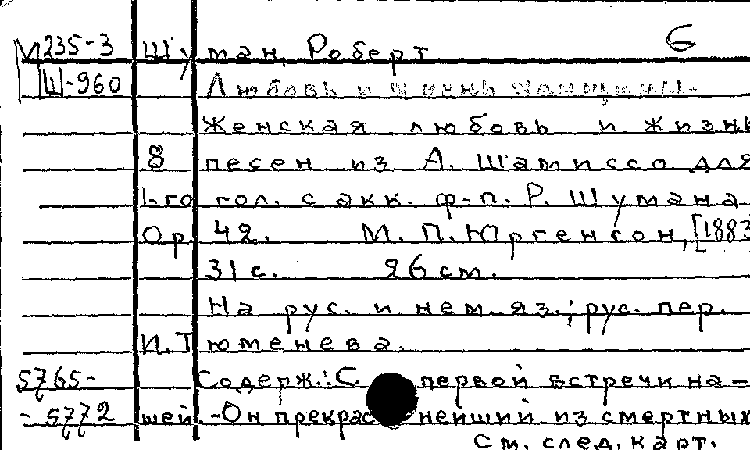 М235-3 Шуман, Роберт б
Ш-960 Любовь и жизнь женщины.
Женская любовь и жизнь
8 песен из А. Шамиссо для
1-го гол. с акк. ф-п. Р. Шумана
Op. 42. М. П. Юргенсон, [1883
31 с. 26 см.
На рус. и нем. яз.; рус. пер.
И. Тюменева.
5765- Содерж.: С первой встречи на-
- 5772 шей. -Он прекраснейший из смертных
См. след. карт.